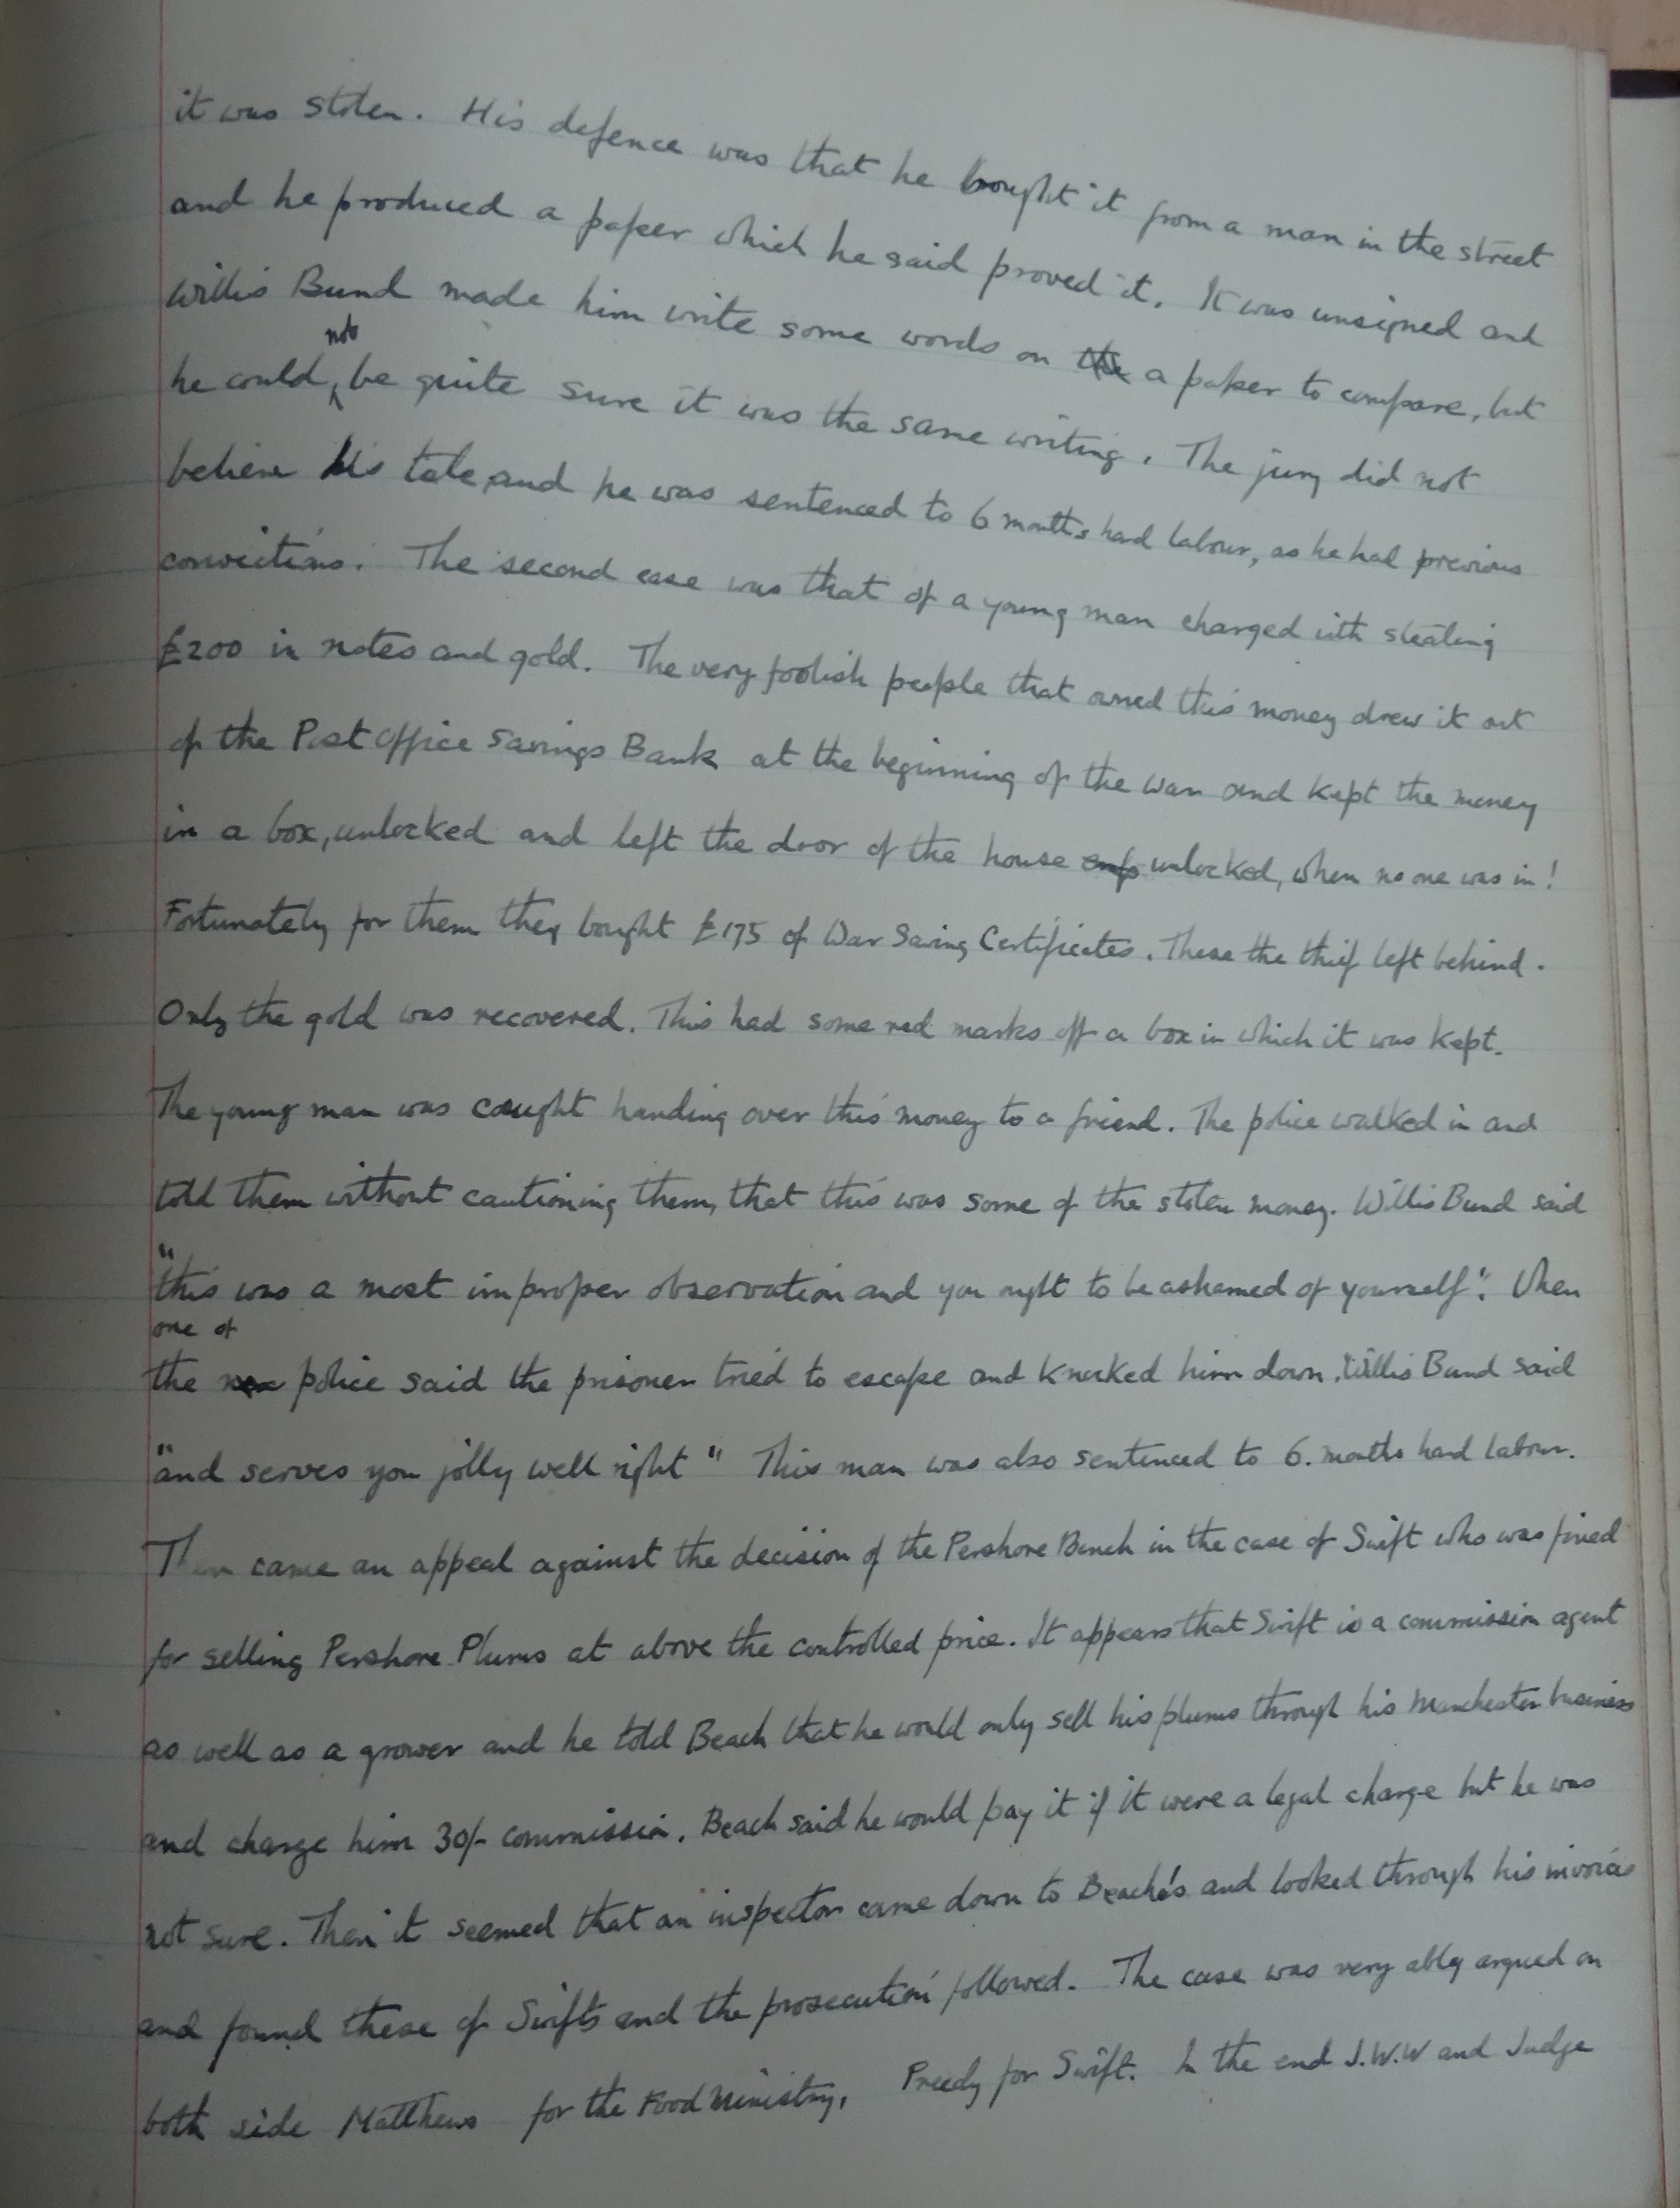 it was stolen. His defence was that he bought it from a man in the street
and he produced a paper which he said proved it. It was unsigned and
Willis Bund made him write some words on the a paper to compare, but
he could not be quite sure it was the same writing. The jury did not
believe his tale, and he was sentenced to 6 months hard labour, as he had previous
convictions. The second case was that of a young man charged with stealing
£200 in notes and gold. The very foolish people that owned this money drew it out
of the Post Office Savings Bank at the beginning of the war and kept the money
in a box, unlocked and left the door of the house unlocked, when no one was in!
Fortunately for them they bought £175 of War Saving Certificates. These the thief left behind.
Only the gold was recovered. This had some red marks off a box in which it was kept.
The young man was caught handing over this money to a friend. The police walked in and
told them without cautioning them, that this was some of the stolen money. Willis Bund said
"this was a most improper observation and you ought to be ashamed of yourself". When
one of
the police said the prisoner tried to escape and knocked him down, Willis Bund said
"and serves you jolly well right" This man was also sentenced to 6. months hard labour.
Then came an appeal against the decision of the Pershore Bench in the case of Swift who was fined
for selling Pershore Plums at above the controlled price. It appears that Swift is a commission agent
as well as a grower and he told Beach that he would only sell his plums through his Manchester business
and charge him 30/- commission. Beach said he would pay it if it were a legal charge but he was
not sure. Then it seemed that an inspector came down to Beach's and looked through his invoices
and found these of Swifts and the prosecution followed. The case was very ably argued on
both side Matthews for the Food Ministry, Preedy for Swift. In the end J.W.W and Judge